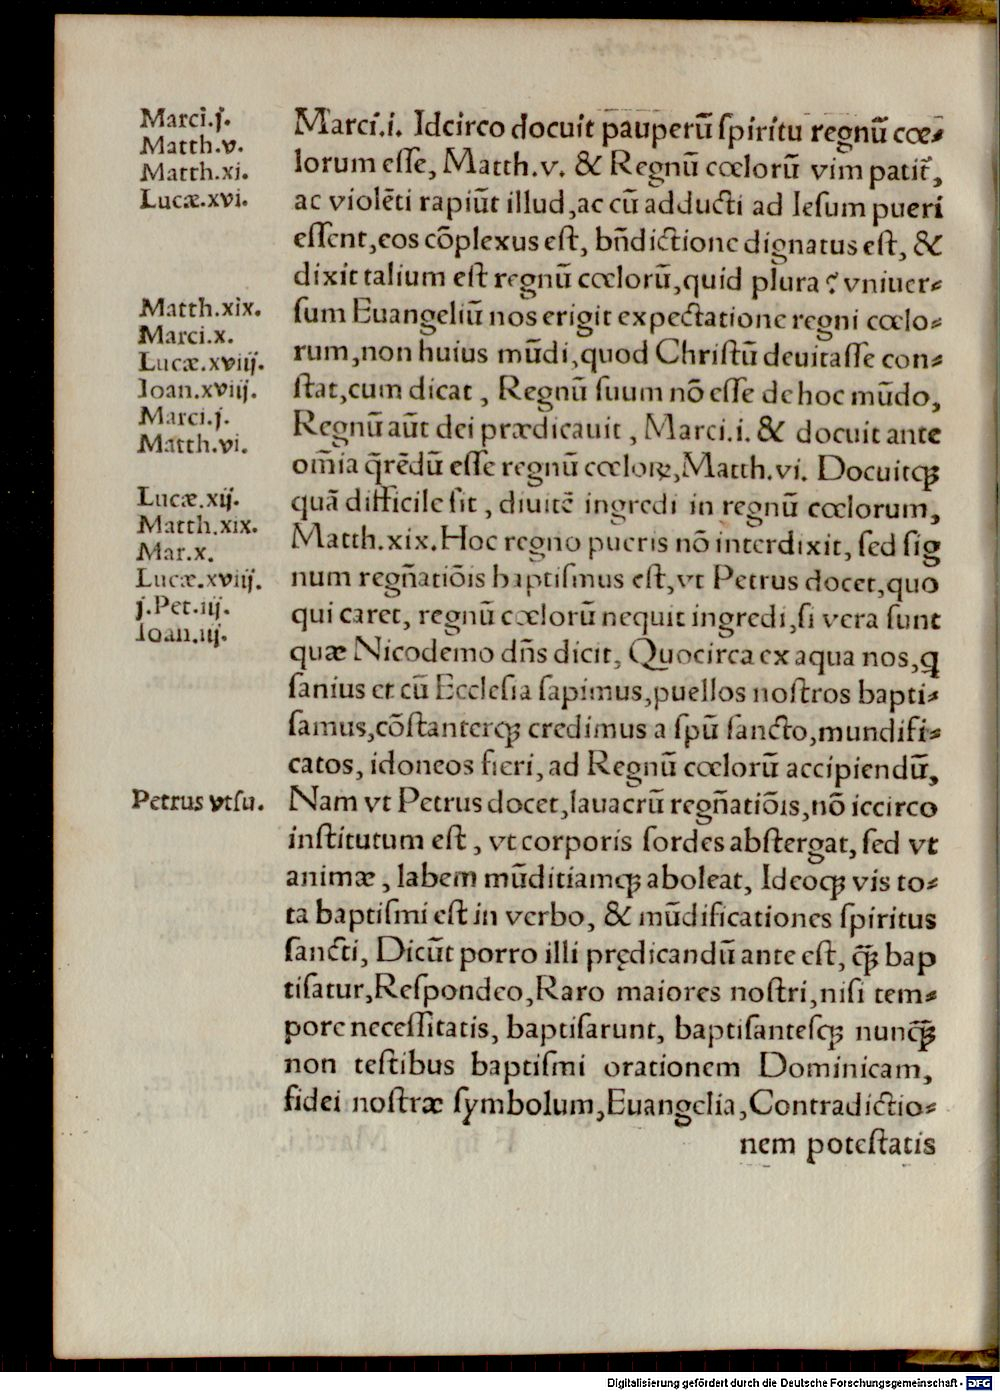 Marci.j.
Matth.v.
Matth.xi.
Lucæ.xvi.
Matth.xix.
Marci.x.
Lucæ.xviij.
Ioan.xviij.
Marci.j.
Matth.vi.
Lucæ.xij.
Matth.xix.
Mar.x.
Lucæ.xviij.
j.Pet.iij.
Ioan.iij.
Petrus vtsu.
Marci.i. Idcirco docuit pauperũ ſpiritu regnũ cœ⸗
lorum eſſe, Matth.v. & Regnũ cœlorũ vim patit᷑,
ac violẽti rapiũt illud,ac cũ adducti ad Ieſum pueri
eſſent,eos cõplexus eſt, bñdictione dignatus eſt, &
dixit talium eſt regnũ cœlorũ,quid plura ? vniuer⸗
ſum Euangeliũ nos erigit expectatione regni cœlo⸗
rum,non huius mũdi,quod Chriſtũ deuitaſſe con⸗
ſtat,cum dicat , Regnũ ſuum nõ eſſe de hoc mũdo,
Regnũ aũt dei prædicauit , Marci.i. & docuit ante
om̃ia q̃rẽdũ eſſe regnũ cœloꝝ,Matth.vi. Docuitqꝫ
quã difficile ſit , diuitẽ ingredi in regnũ cœlorum,
Matth.xix.Hoc regno pueris nõ interdixit, ſed ſig
num regñatiõis baptiſmus eſt,vt Petrus docet,quo
qui caret, regnũ cœlorũ nequit ingredi,ſi vera ſunt
quæ Nicodemo dñs dicit, Quocirca ex aqua nos,q
ſanius et cũ Eccleſia ſapimus,puellos noſtros bapti⸗
ſamus,cõſtanterqꝫ credimus a ſpũ ſancto,mundifi⸗
catos, idoneos fieri, ad Regnũ cœlorũ accipiendũ,
Nam vt Petrus docet,lauacrũ regñatiõis,nõ iccirco
inſtitutum eſt , vt corporis ſordes abſtergat, ſed vt
animæ , labem mũditiamqꝫ aboleat, Ideoqꝫ vis to⸗
ta baptiſmi eſt in verbo, & mũdificationes ſpiritus
ſancti, Dicũt porro illi prędicandũ ante eſt, q̃ꝫ bap
tiſatur,Reſpondeo,Raro maiores noſtri,niſi tem⸗
pore neceſſitatis, baptiſarunt, baptiſanteſqꝫ nunq̃ꝫ
non teſtibus baptiſmi orationem Dominicam,
fidei noſtræ ſymbolum,Euangelia,Contradictio⸗
nem poteſtatis
Digitalisierung gefördert durch die Deutsche Forschungsgemeinschaft - DFG